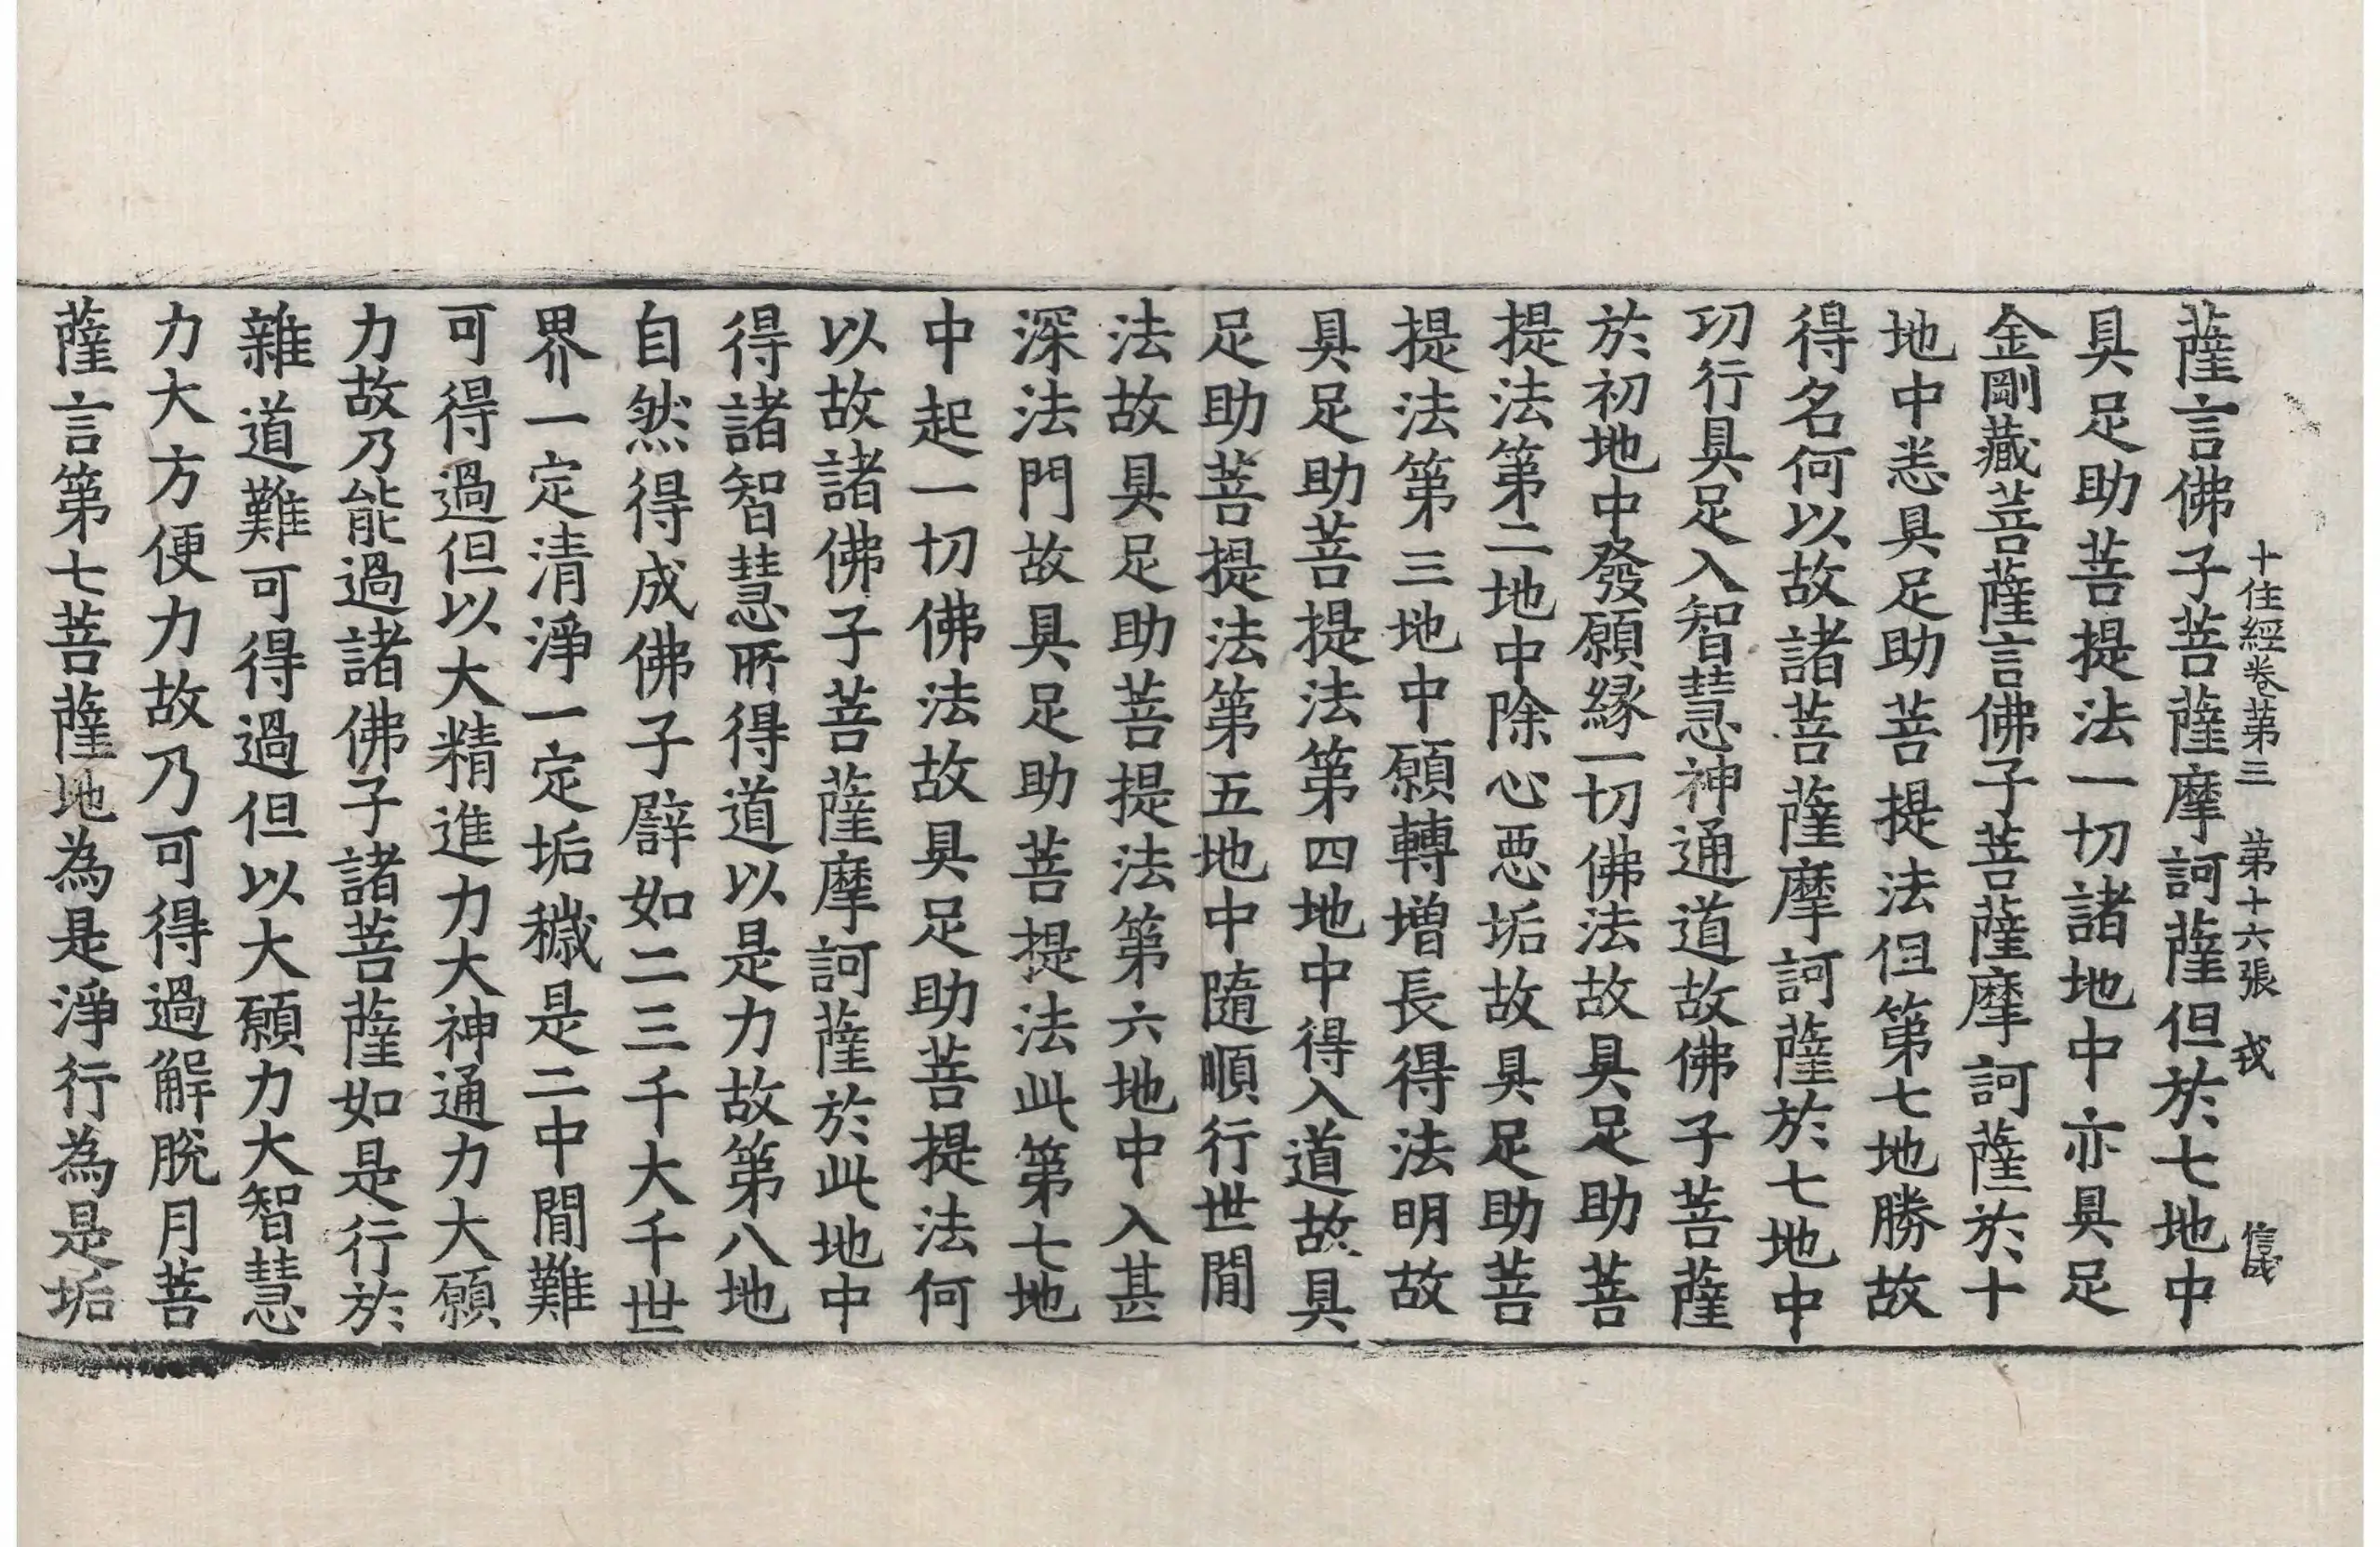 十住經卷第三 第十六張 戎 信成
薩言佛子菩薩摩訶薩但於七地中
具足助菩提法一切諸地中亦具足
金剛藏菩薩言佛子菩薩摩訶薩於十
地中悉具足助菩提法但第七地勝故
得名何以故諸菩薩摩訶薩於七地中
功行具足入智慧神通道故佛子菩薩
於初地中發願緣一切佛法故具足助菩
提法第二地中除心惡垢故具足助菩
提法第三地中願轉增長得法明故
具足助菩提法第四地中得入道故具
足助菩提法第五地中隨順行世閒
法故具足助菩提法第六地中入甚
深法門故具足助菩提法此第七地
中起一切佛法故具足助菩提法何
以故諸佛子菩薩摩訶薩於此地中
得諸智慧所得道以是力故第八地
自然得成佛子譬如二三千大千世
界一定清淨一定垢穢是二中閒難
可得過但以大精進力大神通力大願
力故乃能過諸佛子諸菩薩如是行於
雜道難可得過但以大願力大智慧
力大方便力故乃可得過解脫月菩
薩言第七菩薩地為是淨行為是垢